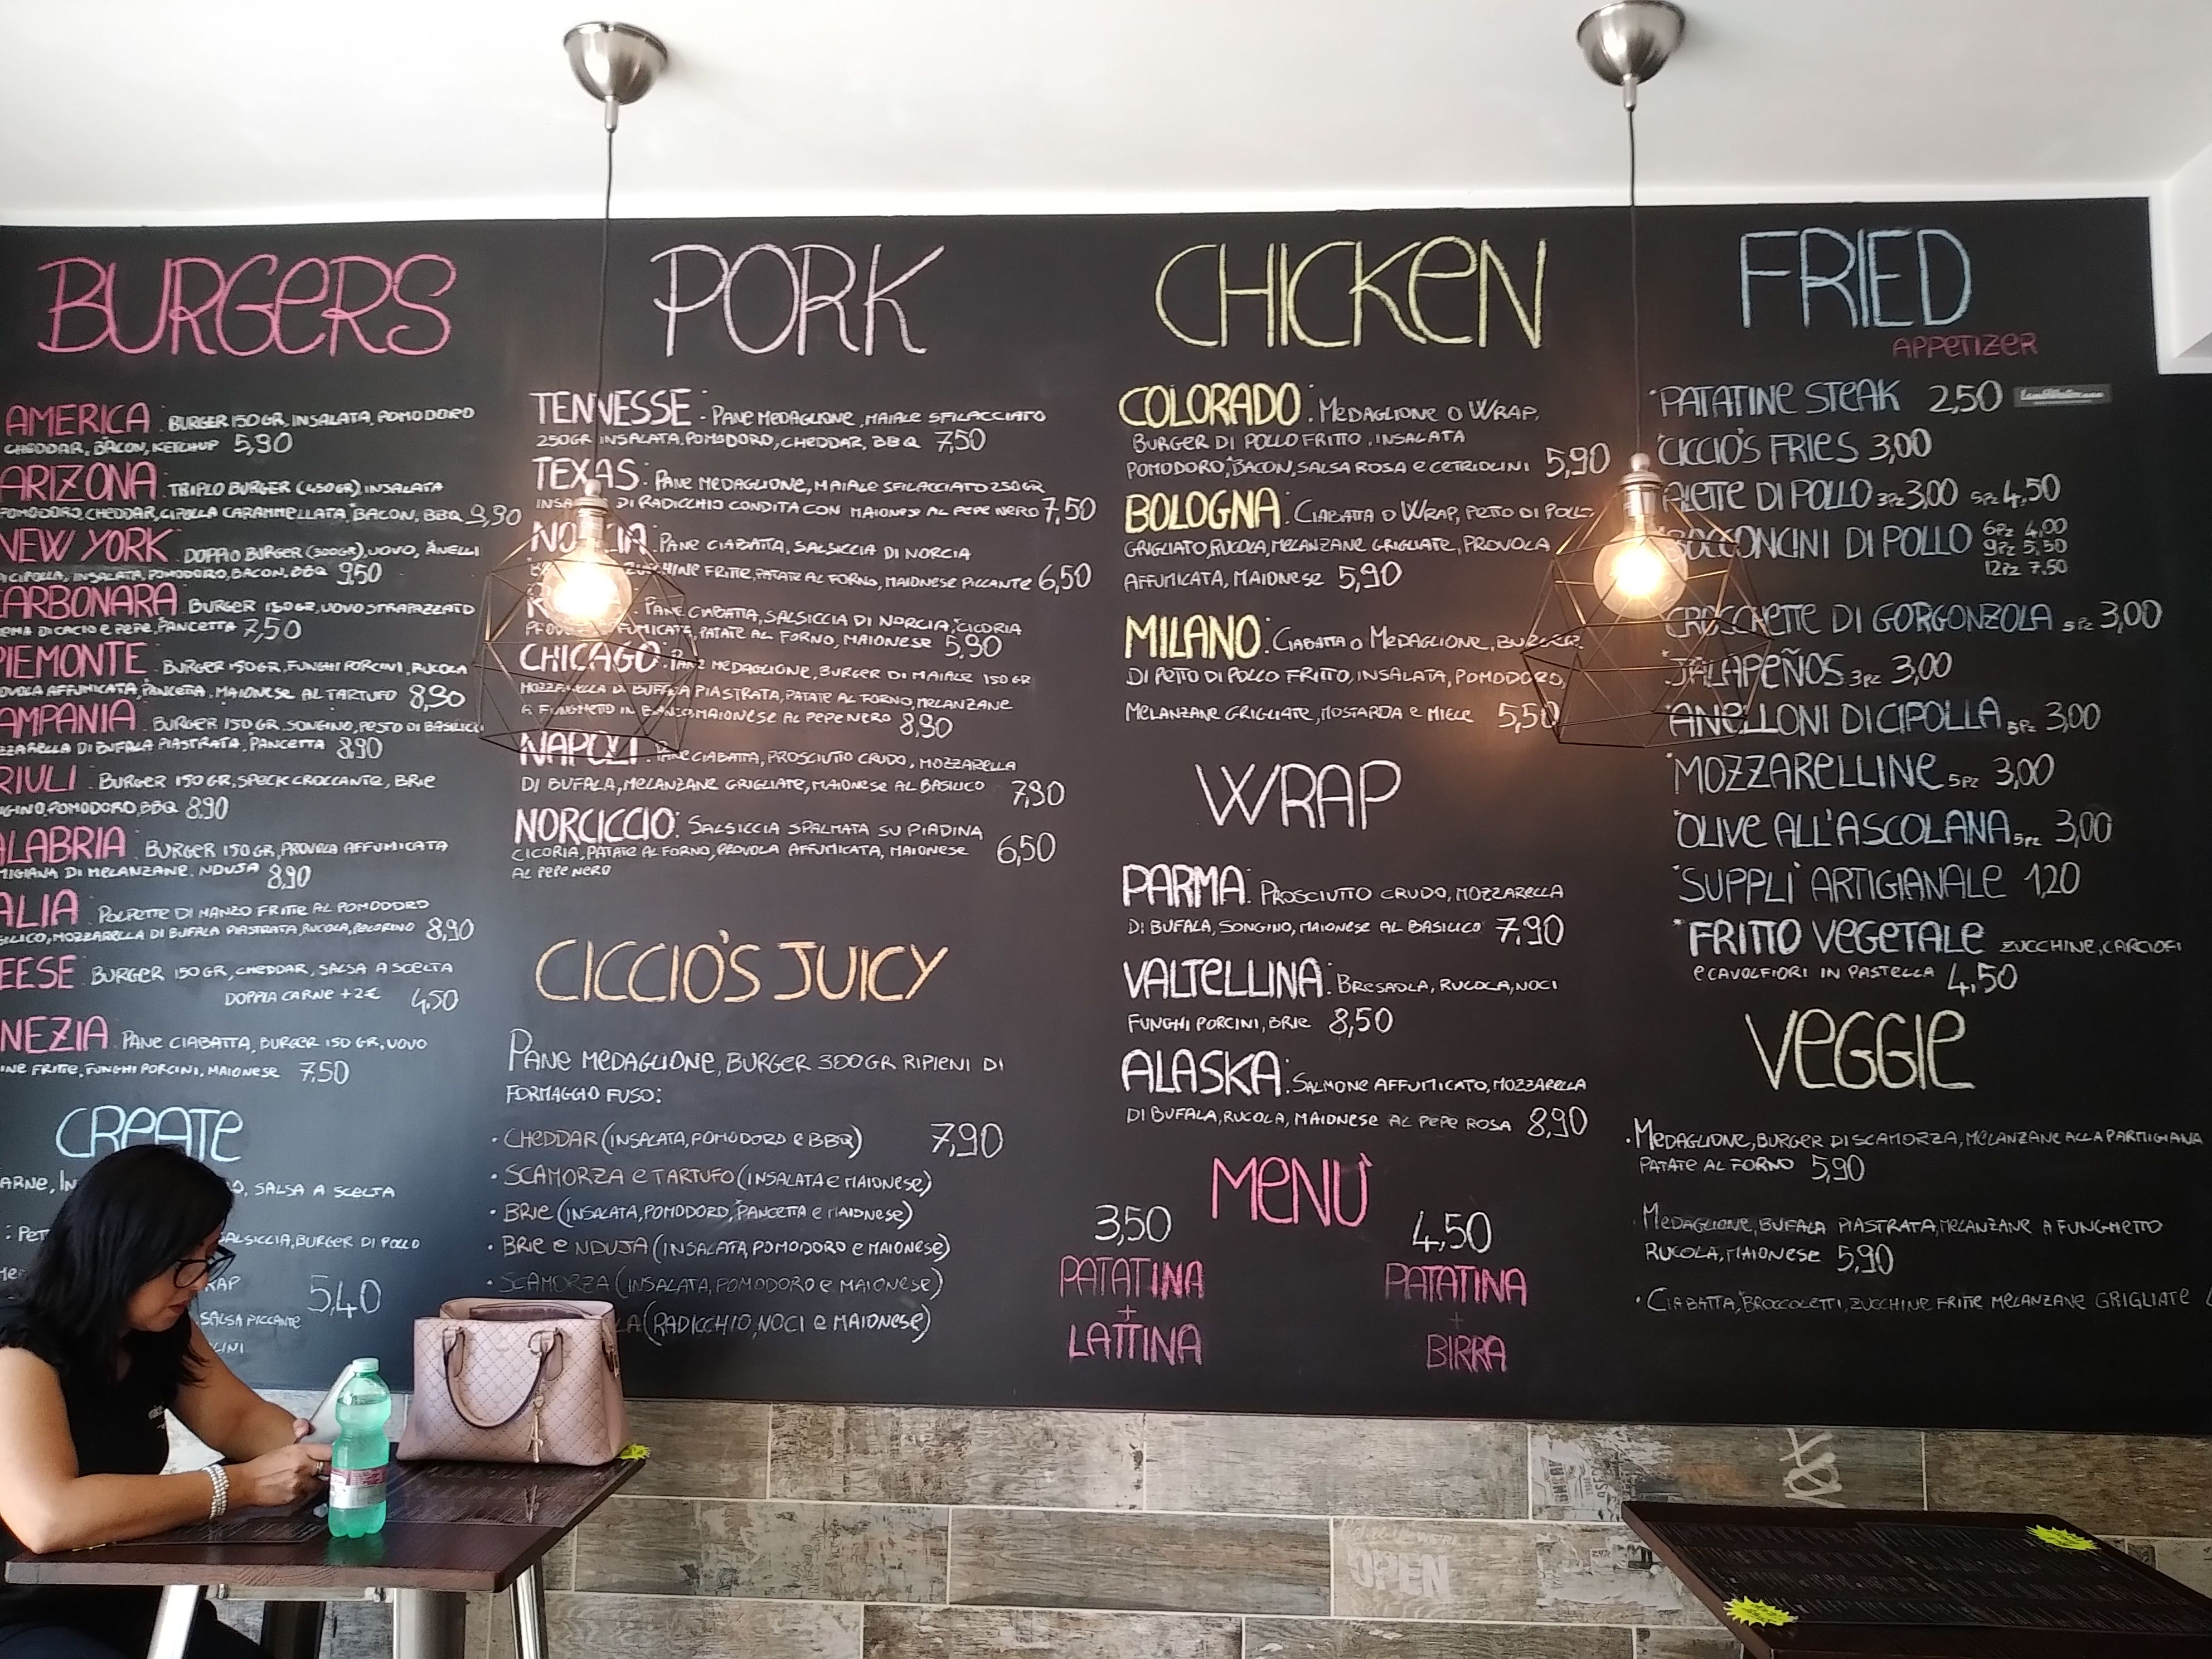 BURGERS
AMERICA: BURGER 150GR, INSALATA, POMODORO
CHEDDAR, BACON, KETCHUP 5,90
ARIZONA: TRIPLO BURGER (450GR), INSALATA
POMODORO, CHEDDAR, CIPOLLA CARAMMELLATA, BACON, BBQ 9,90
NEW YORK: DOPPIO BURGER (300GR), UOVO, ANELLI
DI CIPOLLA, INSALATA, POMODORO, BACON, BBQ 9,50
CARBONARA: BURGER 150GR, UOVO STRAPAZZATO
CACIO E PEPE, PANCETTA 7,50
PIEMONTE: BURGER 150GR, FUNGHI PORCINI, RUCOLA
AFFUMICATA, PANCETTA, MAIONESE AL TARTUFO 8,90
AMPANIA: BURGER 150 GR, SONGINO, PESTO DI BASILICO
DI BUFALA PIASTRATA, PANCETTA 8,90
RIULI: BURGER 150 GR, SPECK CROCCANTE, BRIE
POMODORO, BBQ 8,90
ALABRIA: BURGER 150 GR, PROVOLA AFFUMICATA
MIGIANA DI MELANZANE, NDUJA 8,90
ALIA: POLPETTE DI MANZO FRITTE AL POMODORO
MOZZARELLA DI BUFALA PIASTRATA, RUCOLA, PECORINO 8,90
EESE: BURGER 150 GR, CHEDDAR, SALSA A SCELTA
DOPPIA CARNE +2€ 4,50
NEZIA: PANE CIABATTA, BURGER 150 GR, UOVO
INE FRITTE, FUNGHI PORCINI, MAIONESE 7,50
CREATE
ARNE, IN O, SALSA A SCELTA
: PET ALSICCIA, BURGER DI POLLO
RAP 5,40
SALSA PICCANTE
LINI
PORK
TENNESSE: PANE MEDAGLIONE, MAIALE SFILACCIATO
250GR INSALATA, POMODORO, CHEDDAR, BBQ 7,50
TEXAS: PANE MEDAGLIONE, MAIALE SFILACCIATO 250GR
DI RADICCHIO CONDITA CON MAIONESE AL PEPE NERO 7,50
NORCIA: PANE CIABATTA, SALSICCIA DI NORCIA
ZUCCHINE FRITTE, PATATE AL FORNO, MAIONESE PICCANTE 6,50
PANE CIABATTA, SALSICCIA DI NORCIA, CICORIA
PROVOLA AFFUMICATA, PATATE AL FORNO, MAIONESE 5,90
CHICAGO: PANE MEDAGLIONE, BURGER DI MAIALE 150 GR
MOZZARELLA DI BUFALA PIASTRATA, PATATE AL FORNO, MELANZANE
A FUNGHETTO IN BIANCO MAIONESE AL PEPE NERO 8,90
NAPOLI: PANE CIABATTA, PROSCIUTTO CRUDO, MOZZARELLA
DI BUFALA, MELANZANE GRIGLIATE, MAIONESE AL BASILICO 7,90
NORCICCIO: SALSICCIA SPALMATA SU PIADINA
CICORIA, PATATE AL FORNO, PROVOLA AFFUMICATA, MAIONESE 6,50
AL PEPE NERO
CICCIO'S JUICY
PANE MEDAGLIONE, BURGER 300GR RIPIENI DI
FORMAGGIO FUSO:
• CHEDDAR (INSALATA, POMODORO E BBQ) 7,90
• SCAMORZA E TARTUFO (INSALATA E MAIONESE)
• BRIE (INSALATA, POMODORO, PANCETTA E MAIONESE)
• BRIE E NDUJA (INSALATA, POMODORO E MAIONESE)
• SCAMORZA (INSALATA, POMODORO E MAIONESE)
LA (RADICCHIO, NOCI E MAIONESE)
CHICKEN
COLORADO: MEDAGLIONE O WRAP,
BURGER DI POLLO FRITTO, INSALATA
POMODORO, BACON, SALSA ROSA E CETRIOLINI 5,90
BOLOGNA: CIABATTA O WRAP, PETTO DI POLLO
GRIGLIATO, RUCOLA, MELANZANE GRIGLIATE, PROVOLA
AFFUMICATA, MAIONESE 5,90
MILANO: CIABATTA O MEDAGLIONE, BURGER
DI PETTO DI POLLO FRITTO, INSALATA, POMODORO,
MELANZANE GRIGLIATE, MOSTARDA E MIELE 5,50
WRAP
PARMA: PROSCIUTTO CRUDO, MOZZARELLA
DI BUFALA, SONGINO, MAIONESE AL BASILICO 7,90
VALTELLINA: BRESAOLA, RUCOLA, NOCI
FUNGHI PORCINI, BRIE 8,50
ALASKA: SALMONE AFFUMICATO, MOZZARELLA
DI BUFALA, RUCOLA, MAIONESE AL PEPE ROSA 8,90
MENU'
3,50
PATATINA
+
LATTINA
4,50
PATATINA
+
BIRRA
FRIED
APPETIZER
PATATINE STEAK 2,50
CICCIO'S FRIES 3,00
ALETTE DI POLLO 3PZ 3,00 5PZ 4,50
BOCCONCINI DI POLLO 6PZ 4,00
9PZ 5,50
12PZ 7,50
CROSCHETTE DI GORGONZOLA 5PZ 3,00
JALAPEÑOS 3PZ 3,00
ANELLONI DI CIPOLLA 5PZ 3,00
MOZZARELLINE 5PZ 3,00
OLIVE ALL'ASCOLANA 5PZ 3,00
SUPPLI' ARTIGIANALE 1,20
FRITTO VEGETALE ZUCCHINE, CARCIOFI
E CAVOLFIORI IN PASTELLA 4,50
VEGGIE
• MEDAGLIONE, BURGER DI SCAMORZA, MELANZANE ALLA PARMIGIANA
PATATE AL FORNO 5,90
• MEDAGLIONE, BUFALA PIASTRATA, MELANZANE A FUNGHETTO
RUCOLA, MAIONESE 5,90
• CIABATTA, BROCCOLETTI, ZUCCHINE FRITTE MELANZANE GRIGLIATE
OPEN